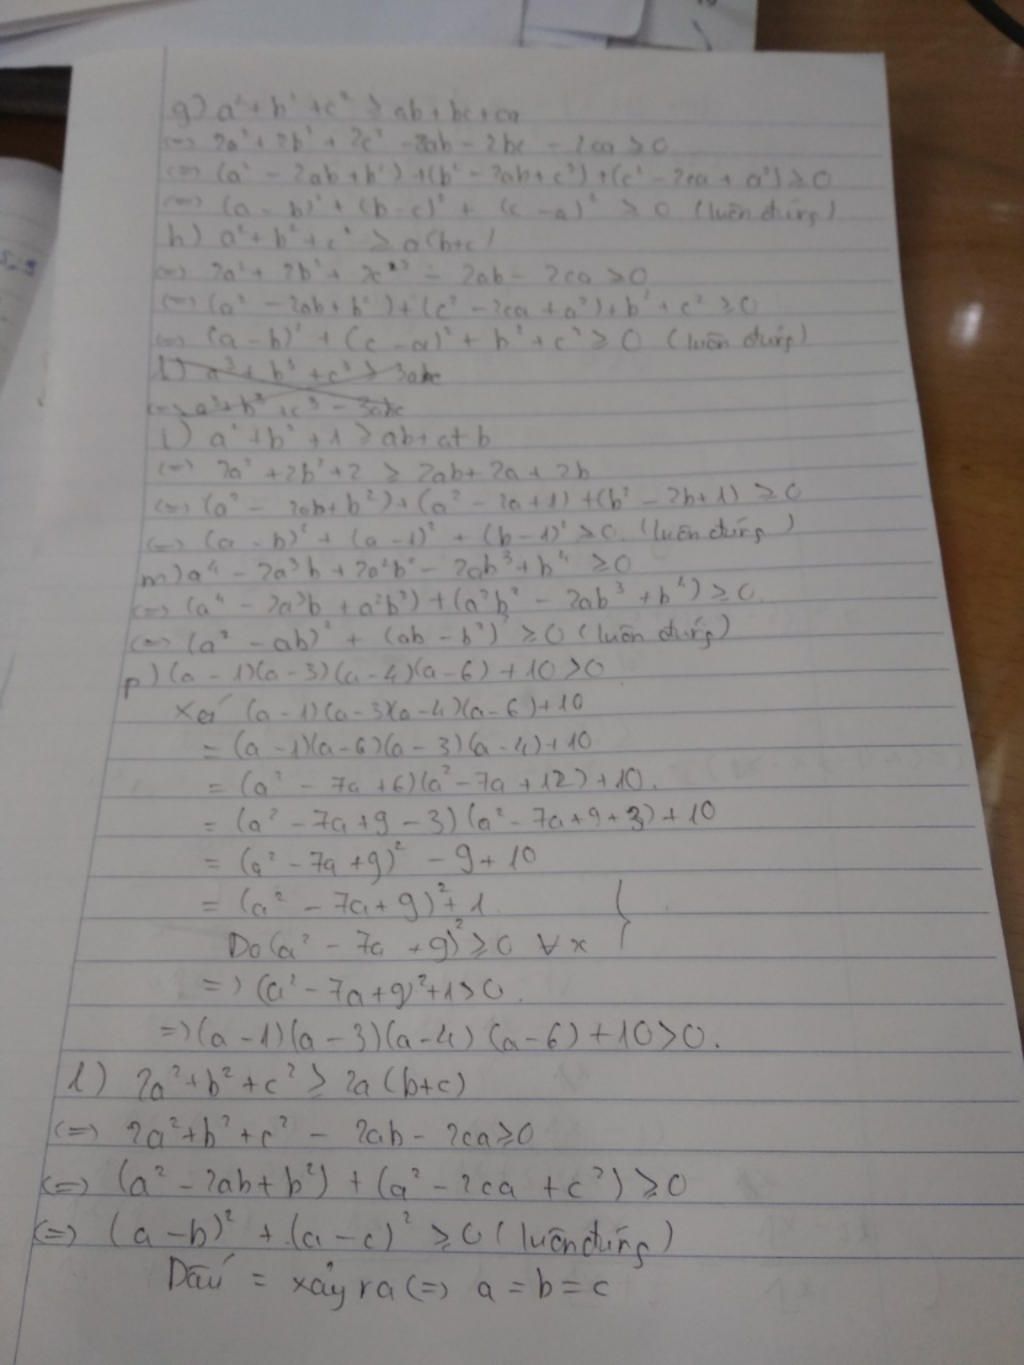 g) a² + b² + c² ≥ ab + bc + ca
<=> 2a² + 2b² + 2c² - 2ab - 2bc - 2ca ≥ 0
<=> (a² - 2ab + b²) + (b² - 2ab + c²) + (c² - 2ca + a²) ≥ 0
<=> (a - b)² + (b - c)² + (c - a)² ≥ 0 (luôn đúng)
h) a² + b² + c² ≥ a(b+c)
<=> 2a² + 2b² + 2c² - 2ab - 2ca ≥ 0
<=> (a² - 2ab + b²) + (c² - 2ca + a²) + b² + c² ≥ 0
<=> (a - b)² + (c - a)² + b² + c² ≥ 0 (luôn đúng)
a³ + b³ + c³ ≥ 3abc
<=> a³ + b³ + c³ - 3abc
i) a² + b² + 1 ≥ ab + a + b
<=> 2a² + 2b² + 2 ≥ 2ab + 2a + 2b
<=> (a² - 2ab + b²) + (a² - 2a + 1) + (b² - 2b + 1) ≥ 0
<=> (a - b)² + (a - 1)² + (b - 1)² ≥ 0 (luôn đúng)
m) a⁴ - 2a³b + 2a²b² - 2ab³ + b⁴ ≥ 0
<=> (a⁴ - 2a³b + a²b²) + (a²b² - 2ab³ + b⁴) ≥ 0.
<=> (a² - ab)² + (ab - b²)² ≥ 0 (luôn đúng)
p) (a - 1)(a - 3)(a - 4)(a - 6) + 10 > 0
Xét (a - 1)(a - 3)(a - 4)(a - 6) + 10
= (a - 1)(a - 6)(a - 3)(a - 4) + 10
= (a² - 7a + 6)(a² - 7a + 12) + 10.
= (a² - 7a + 9 - 3)(a² - 7a + 9 + 3) + 10
= (a² - 7a + 9)² - 9 + 10
= (a² - 7a + 9)² + 1
Do (a² - 7a + 9)² ≥ 0 ∀ x
=> (a² - 7a + 9)² + 1 > 0.
=> (a - 1)(a - 3)(a - 4)(a - 6) + 10 > 0.
l) 2a² + b² + c² ≥ 2a(b+c)
<=> 2a² + b² + c² - 2ab - 2ca ≥ 0
<=> (a² - 2ab + b²) + (a² - 2ca + c²) ≥ 0
<=> (a - b)² + (a - c)² ≥ 0 (luôn đúng)
Dấu = xảy ra <=> a = b = c